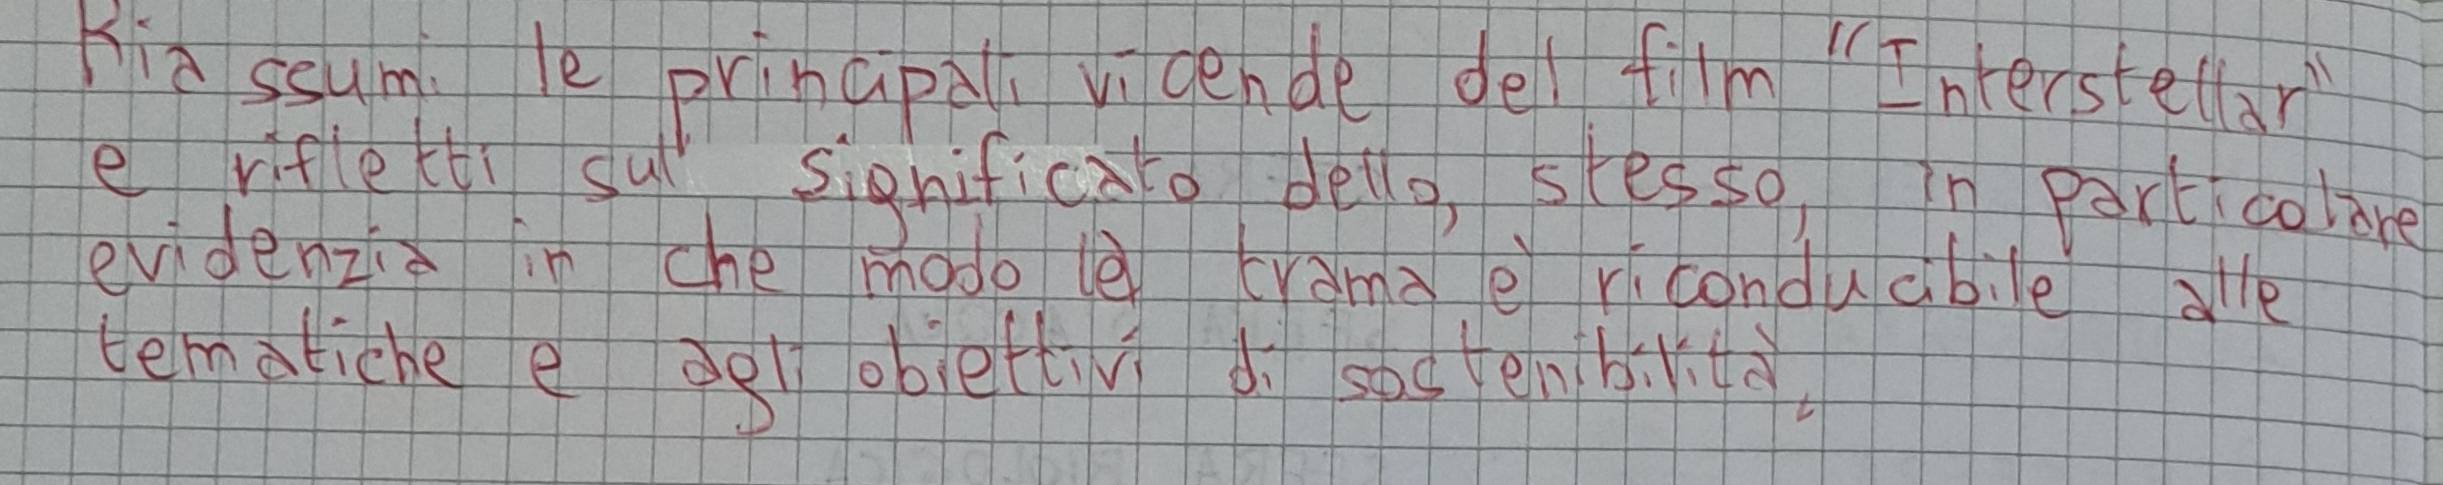 Riassumi le principali vicende del film "Interstellar"
e rifletti sul significato dello, stesso, in particolare
evidenzia in che modo la trama è riconducibile alle
tematiche e agli obiettivi di sostenibilità.